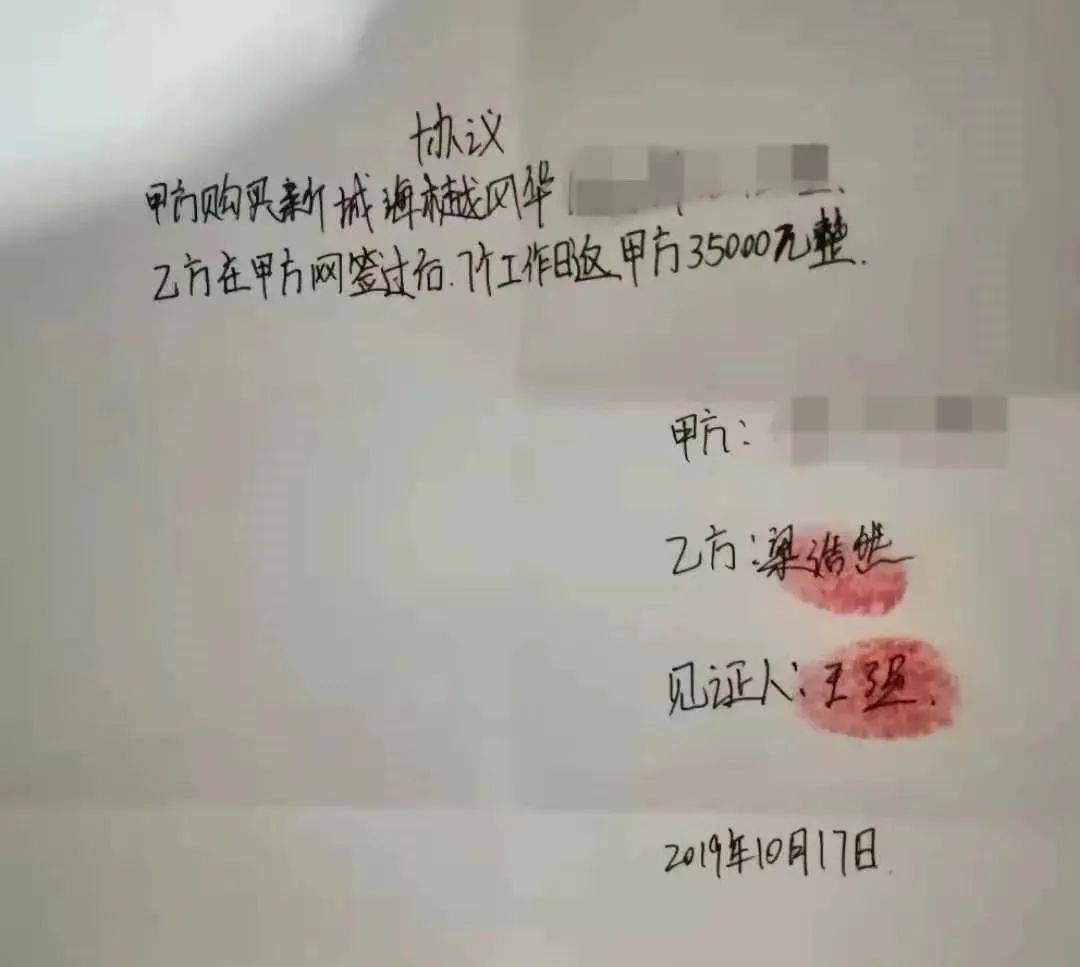 协议
甲方购买新城海樾风华
乙方在甲方网签过后.7个工作日返甲方35000元整.
甲方:
乙方:梁浩然
见证人:王强.
2019年10月17日.